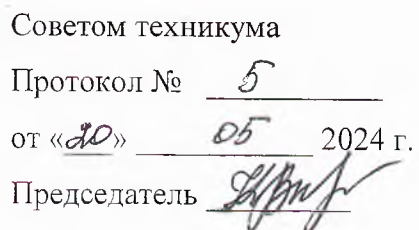 Советом техникума
Протокол № 5
от «20» 05 2024 г.
Председатель